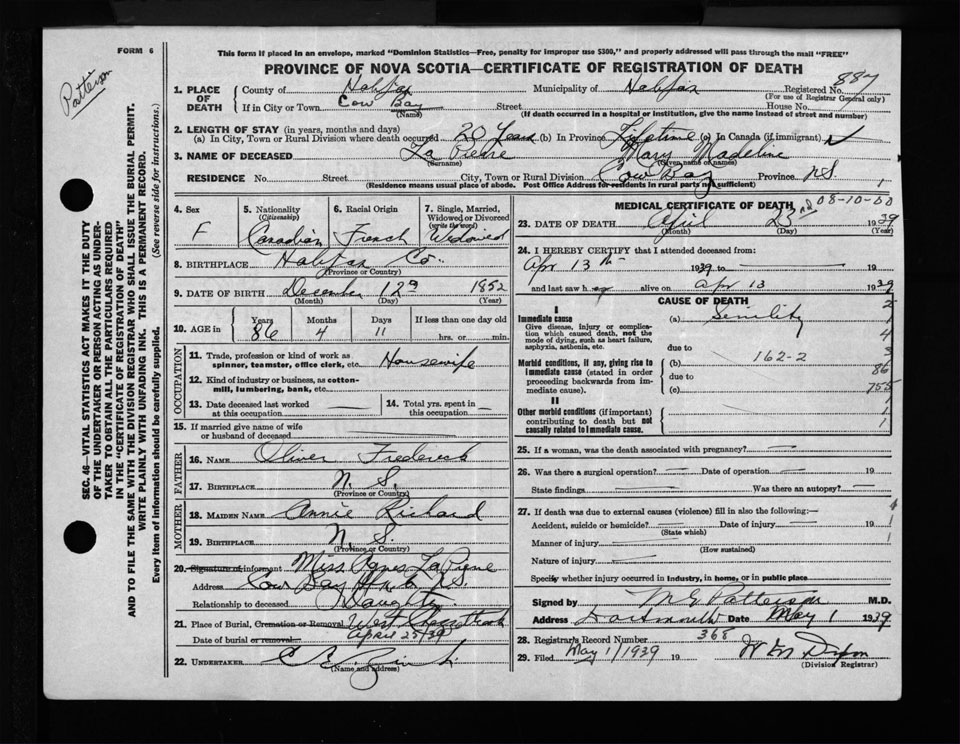 FORM 6
Patterson
This form if placed in an envelope, marked "Dominion Statistics—Free, penalty for improper use $300," and properly addressed will pass through the mail "FREE"
PROVINCE OF NOVA SCOTIA—CERTIFICATE OF REGISTRATION OF DEATH
887
1. PLACE OF DEATH County of Halifax Municipality of Halifax Registered No.
(For use of Registrar General only)
If in City or Town Cow Bay Street House No.
(Name) (If death occurred in a hospital or institution, give the name instead of street and number)
2. LENGTH OF STAY (in years, months and days)
(a) In City, Town or Rural Division where death occurred 20 Years (b) In Province Lifetime (c) In Canada (if immigrant)
3. NAME OF DECEASED La Pierre Mary Madeline
(Surname) (Given name or names)
RESIDENCE No. Street City, Town or Rural Division Cow Bay Province N.S.
(Residence means usual place of abode. Post Office Address for residents in rural parts not sufficient)
SEC. 46—VITAL STATISTICS ACT MAKES IT THE DUTY
OF THE UNDERTAKER OR PERSON ACTING AS UNDER-
TAKER TO OBTAIN ALL THE PARTICULARS REQUIRED
IN THE "CERTIFICATE OF REGISTRATION OF DEATH"
AND TO FILE THE SAME WITH THE DIVISION REGISTRAR WHO SHALL ISSUE THE BURIAL PERMIT.
WRITE PLAINLY WITH UNFADING INK. THIS IS A PERMANENT RECORD.
Every item of information should be carefully supplied. (See reverse side for instructions.)
4. Sex F
5. Nationality (Citizenship) Canadian
6. Racial Origin French
7. Single, Married, Widowed or Divorced (write the word) Widowed
8. BIRTHPLACE Halifax Co.
(Province or Country)
9. DATE OF BIRTH December 12 1852
(Month) (Day) (Year)
10. AGE in Years Months Days If less than one day old
86 4 11 hrs. or min.
OCCUPATION
11. Trade, profession or kind of work as spinner, teamster, office clerk, etc. Housewife
12. Kind of industry or business, as cotton-mill, lumbering, bank, etc.
13. Date deceased last worked at this occupation
14. Total yrs. spent in this occupation
15. If married give name of wife or husband of deceased
FATHER
16. NAME Oliver Frederick
17. BIRTHPLACE N. S.
(Province or Country)
MOTHER
18. MAIDEN NAME Annie Richard
19. BIRTHPLACE N. S.
(Province or Country)
20. Signature of informant Miss Agnes LaPierre
Address Cow Bay N.S.
Relationship to deceased Daughter
21. Place of Burial, Cremation or Removal West
Date of burial or removal April 25/39
22. UNDERTAKER
(Name and address)
MEDICAL CERTIFICATE OF DEATH
08-10-00
23. DATE OF DEATH April 23rd 1939
(Month) (Day) (Year)
24. I HEREBY CERTIFY that I attended deceased from:
Apr 13th 1939 to 19
and last saw her alive on Apr 13 1939
CAUSE OF DEATH
I
Immediate cause (a) Senility
Give disease, injury or complication which caused death, not the mode of dying, such as heart failure, asphyxia, asthenia, etc.
due to
Morbid conditions, if any, giving rise to immediate cause (stated in order proceeding backwards from immediate cause).
(b) 162-2
due to
(c)
86
755
II
Other morbid conditions (if important) contributing to death but not causally related to immediate cause.
25. If a woman, was the death associated with pregnancy?
26. Was there a surgical operation? Date of operation 19
State findings Was there an autopsy?
27. If death was due to external causes (violence) fill in also the following:—
Accident, suicide or homicide? Date of injury 19
(State which)
Manner of injury
(How sustained)
Nature of injury
Specify whether injury occurred in industry, in home, or in public place
Signed by M G Patterson M.D.
Address Dartmouth Date May 1 1939
28. Registrar's Record Number 368
29. Filed May 1/1939 19 W M Dixon
(Division Registrar)